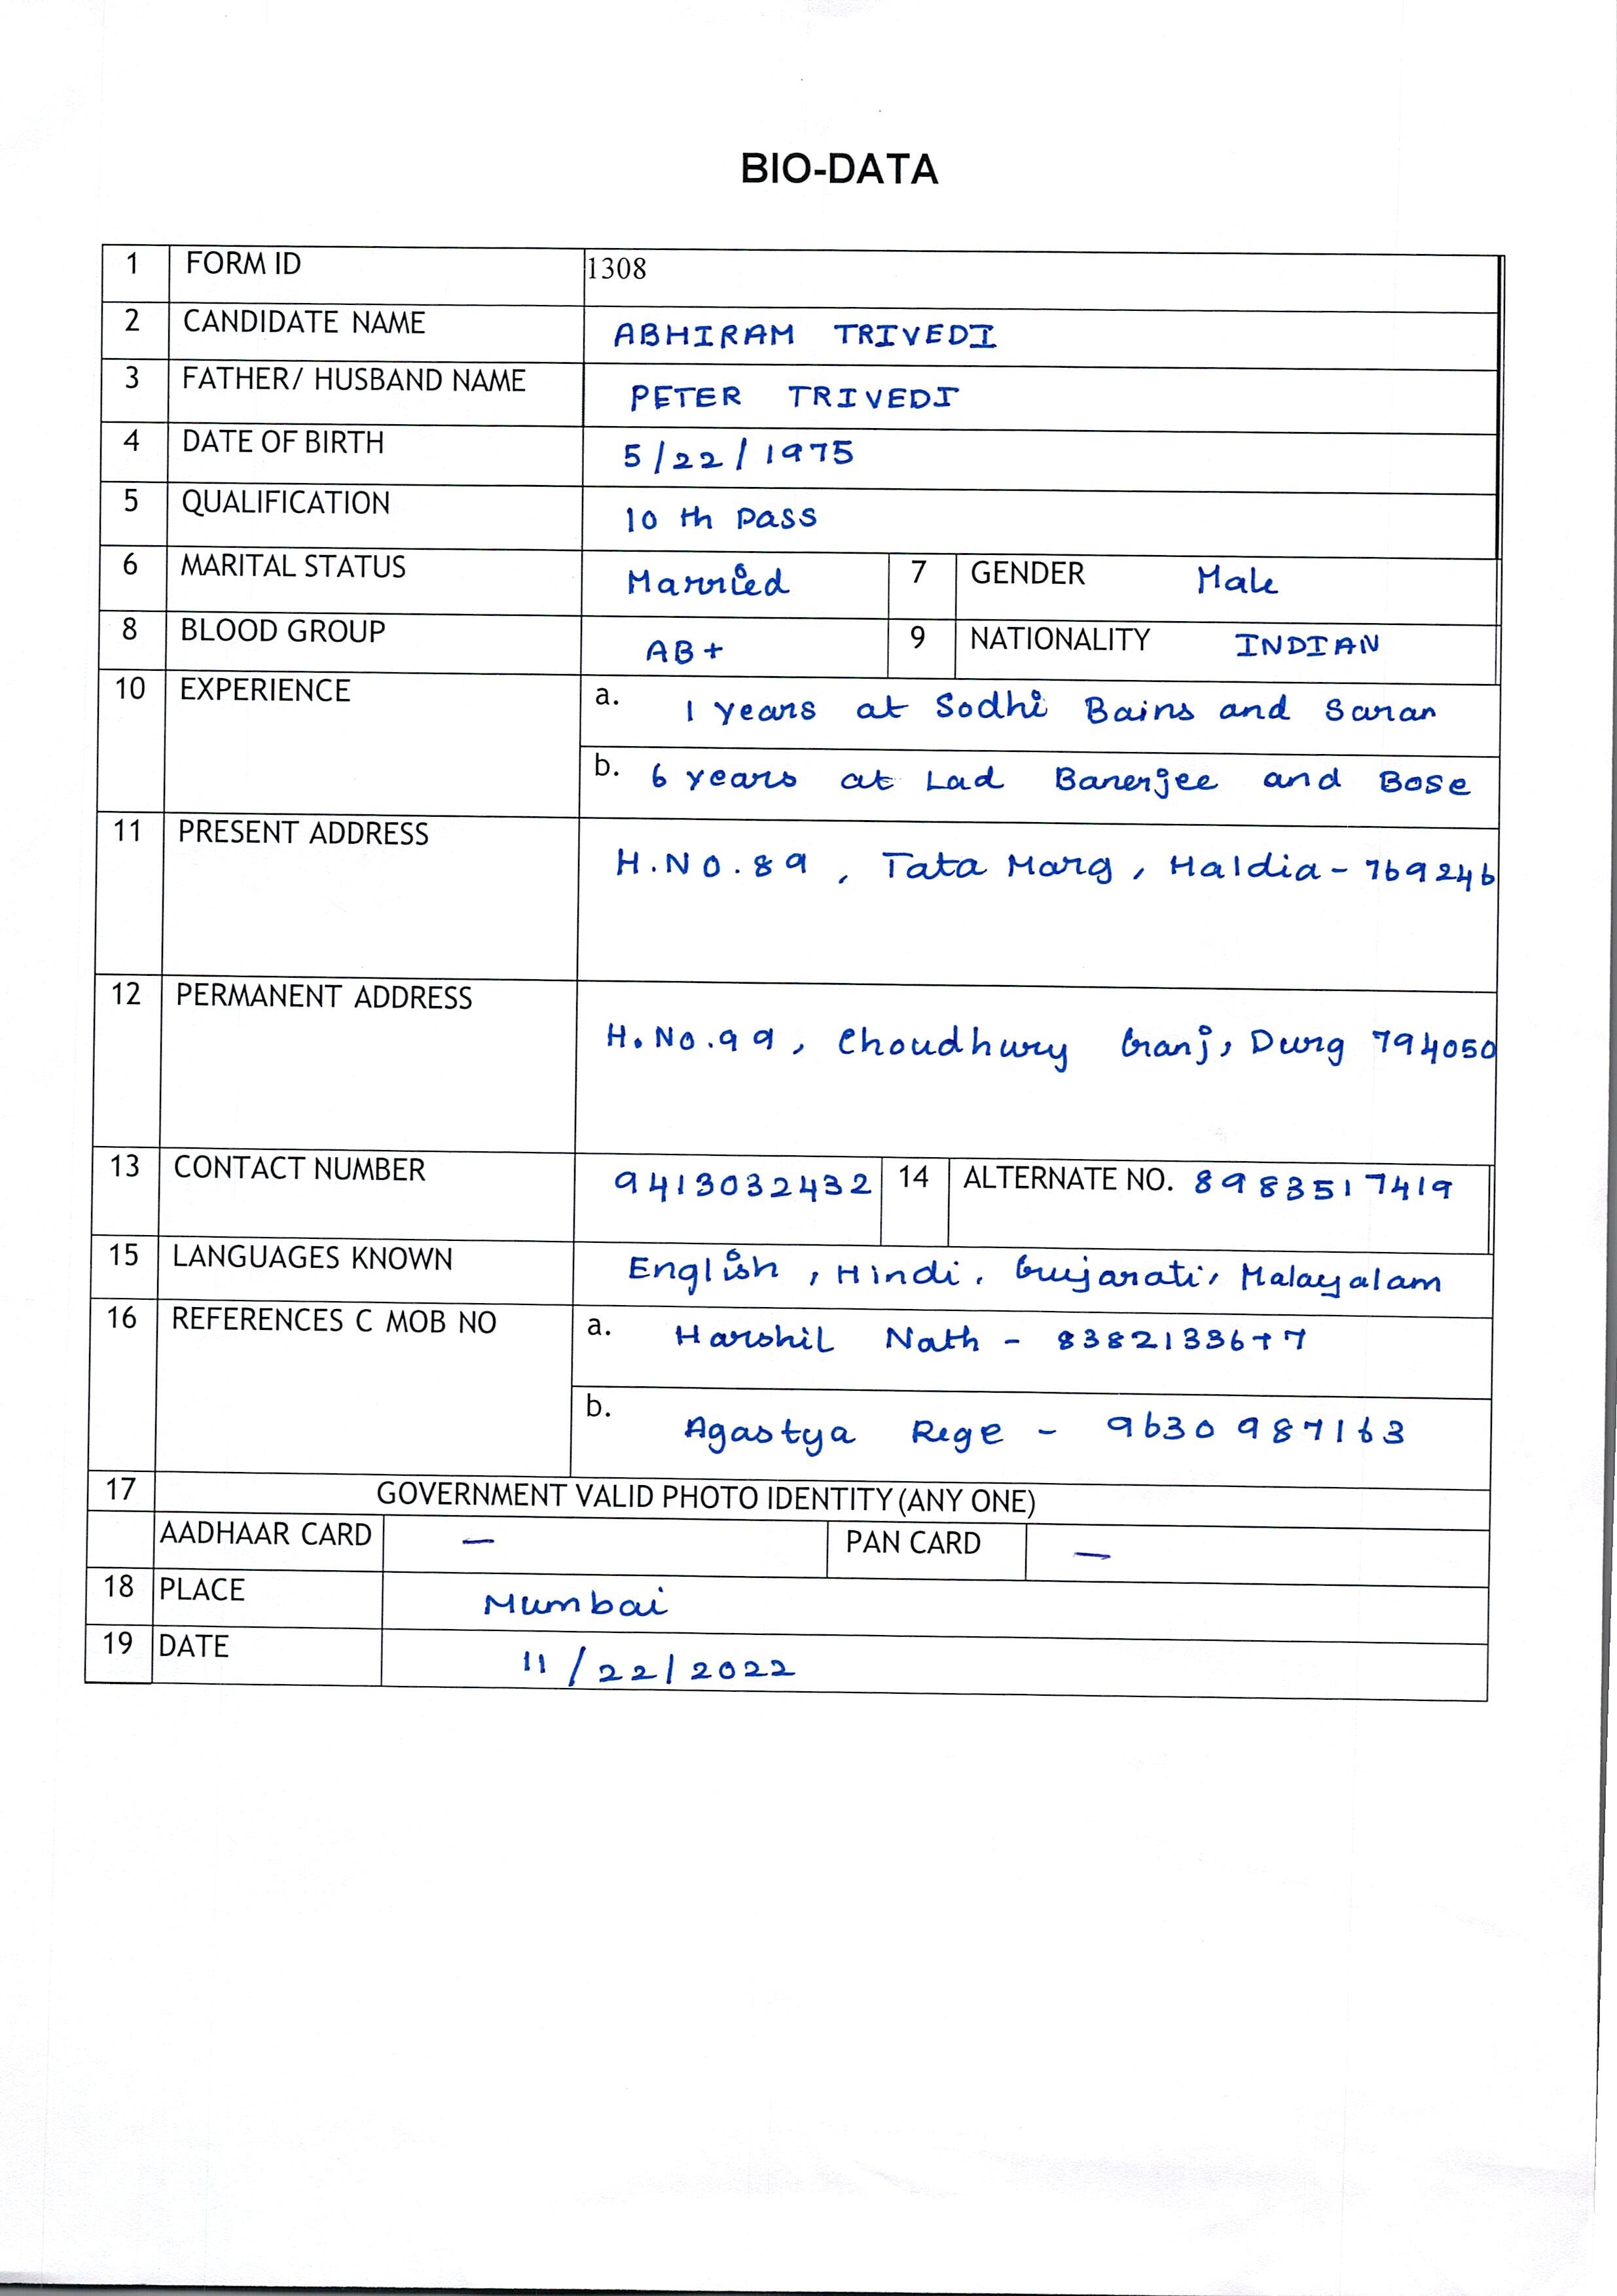 BIO-DATA
1 FORM ID 1308
2 CANDIDATE NAME ABHIRAM TRIVEDI
3 FATHER/ HUSBAND NAME PETER TRIVEDI
4 DATE OF BIRTH 5/22/1975
5 QUALIFICATION 10 th pass
6 MARITAL STATUS Married 7 GENDER Male
8 BLOOD GROUP AB+ 9 NATIONALITY INDIAN
10 EXPERIENCE a. 1 years at Sodhi Bains and Saran
b. 6 years at Lad Banerjee and Bose
11 PRESENT ADDRESS H.NO.89, Tata Marg, Haldia-769246
12 PERMANENT ADDRESS H.No.99, Choudhury Ganj, Durg 794050
13 CONTACT NUMBER 9413032432 14 ALTERNATE NO. 8983517419
15 LANGUAGES KNOWN English, Hindi, Gujarati, Malayalam
16 REFERENCES C MOB NO a. Harshil Nath -
b. Agastya Rege - 9630987163
17 GOVERNMENT VALID PHOTO IDENTITY (ANY ONE)
AADHAAR CARD — PAN CARD —
18 PLACE Mumbai
19 DATE 11/22/2022